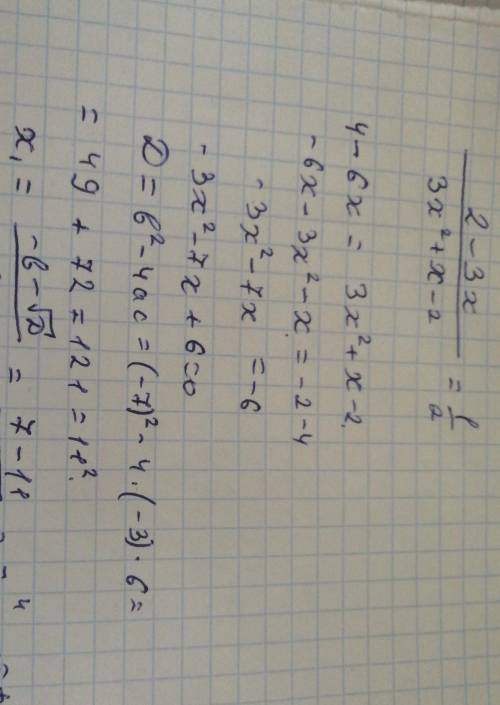 (2 - 3x) / (3x² + x - 2) = 1/2
4 - 6x = 3x² + x - 2
- 6x - 3x² - x = - 2 - 4
- 3x² - 7x = - 6
- 3x² - 7x + 6 = 0
D = b² - 4ac = (-7)² - 4 · (-3) · 6 =
= 49 + 72 = 121 = 11²
x₁ = (-b - √D) / = 7 - 11